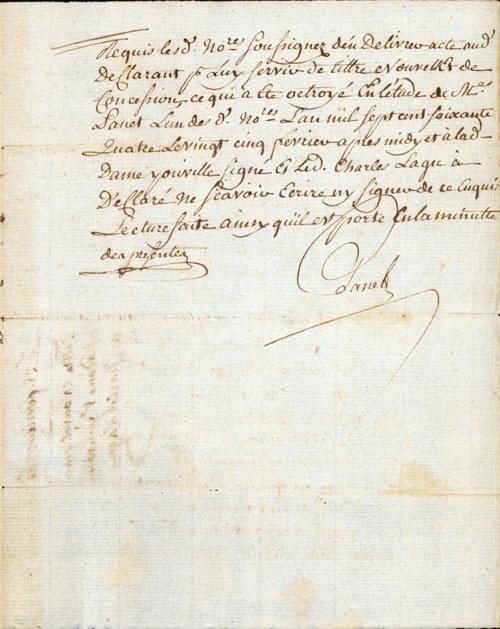 Requis les d. No.res soussignez d'en Delivrer acte aud.
declarant p. Luy servir de tittre Nouvelle et de
Concession, ce qui a Eté octroyé En létude de M.e
Panet Lun des d. No.res Lan mil sept cent soixante
Quatre Le vingt cinq fevrier apres midy et à lad.
Dame youville signé Et Led. Charles Lagu à
Declaré ne scavoir Ecrire ny signer de ce Enquis
Lecture faite ainsy quil est porté En la minutte
des presentes
Panet